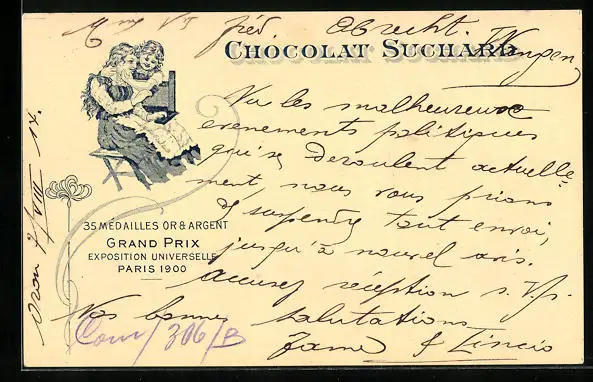 Mme Vve fréd Obrecht. Wangen
CHOCOLAT SUCHARD
Vu les malheureuse
evenements politiques
qui se deroulent actuelle-
ment, nous vous prions
de suspendre tout envoi,
jusqu'à nouvel avis.
accusez réception s.V.p.
Vos bonnes salutations
35 MEDAILLES OR & ARGENT
GRAND PRIX
EXPOSITION UNIVERSELLE
PARIS 1900
Oran 7/VIII 14.
306/B